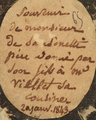 Souvenir
de monsieur
de la Sinette
père donné par
son fils à Mr
Vielbst sa
cousine
20 janv. 1843